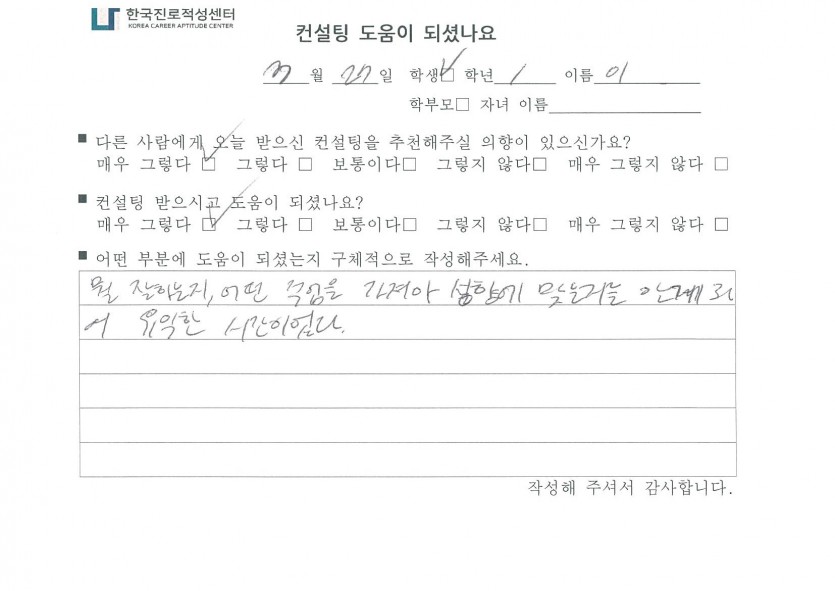 한국진로적성센터
KOREA CAREER APTITUDE CENTER
컨설팅 도움이 되셨나요
월 27 일 학생☑ 학년 1 이름 이
학부모□ 자녀 이름
■ 다른 사람에게 오늘 받으신 컨설팅을 추천해주실 의향이 있으신가요?
매우 그렇다 ☑ 그렇다 □ 보통이다□ 그렇지 않다□ 매우 그렇지 않다 □
■ 컨설팅 받으시고 도움이 되셨나요?
매우 그렇다 ☑ 그렇다 □ 보통이다□ 그렇지 않다□ 매우 그렇지 않다 □
■ 어떤 부분에 도움이 되셨는지 구체적으로 작성해주세요.
뭘 잘하는지, 어떤 직업을 가져야 성향에 맞는지를 알게 되
어 유익한 시간이었다.
작성해 주셔서 감사합니다.